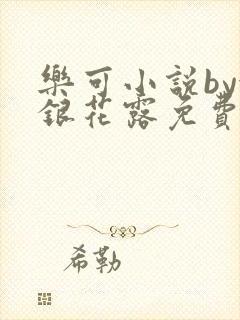 樂可小說by
銀花露免費
希勒